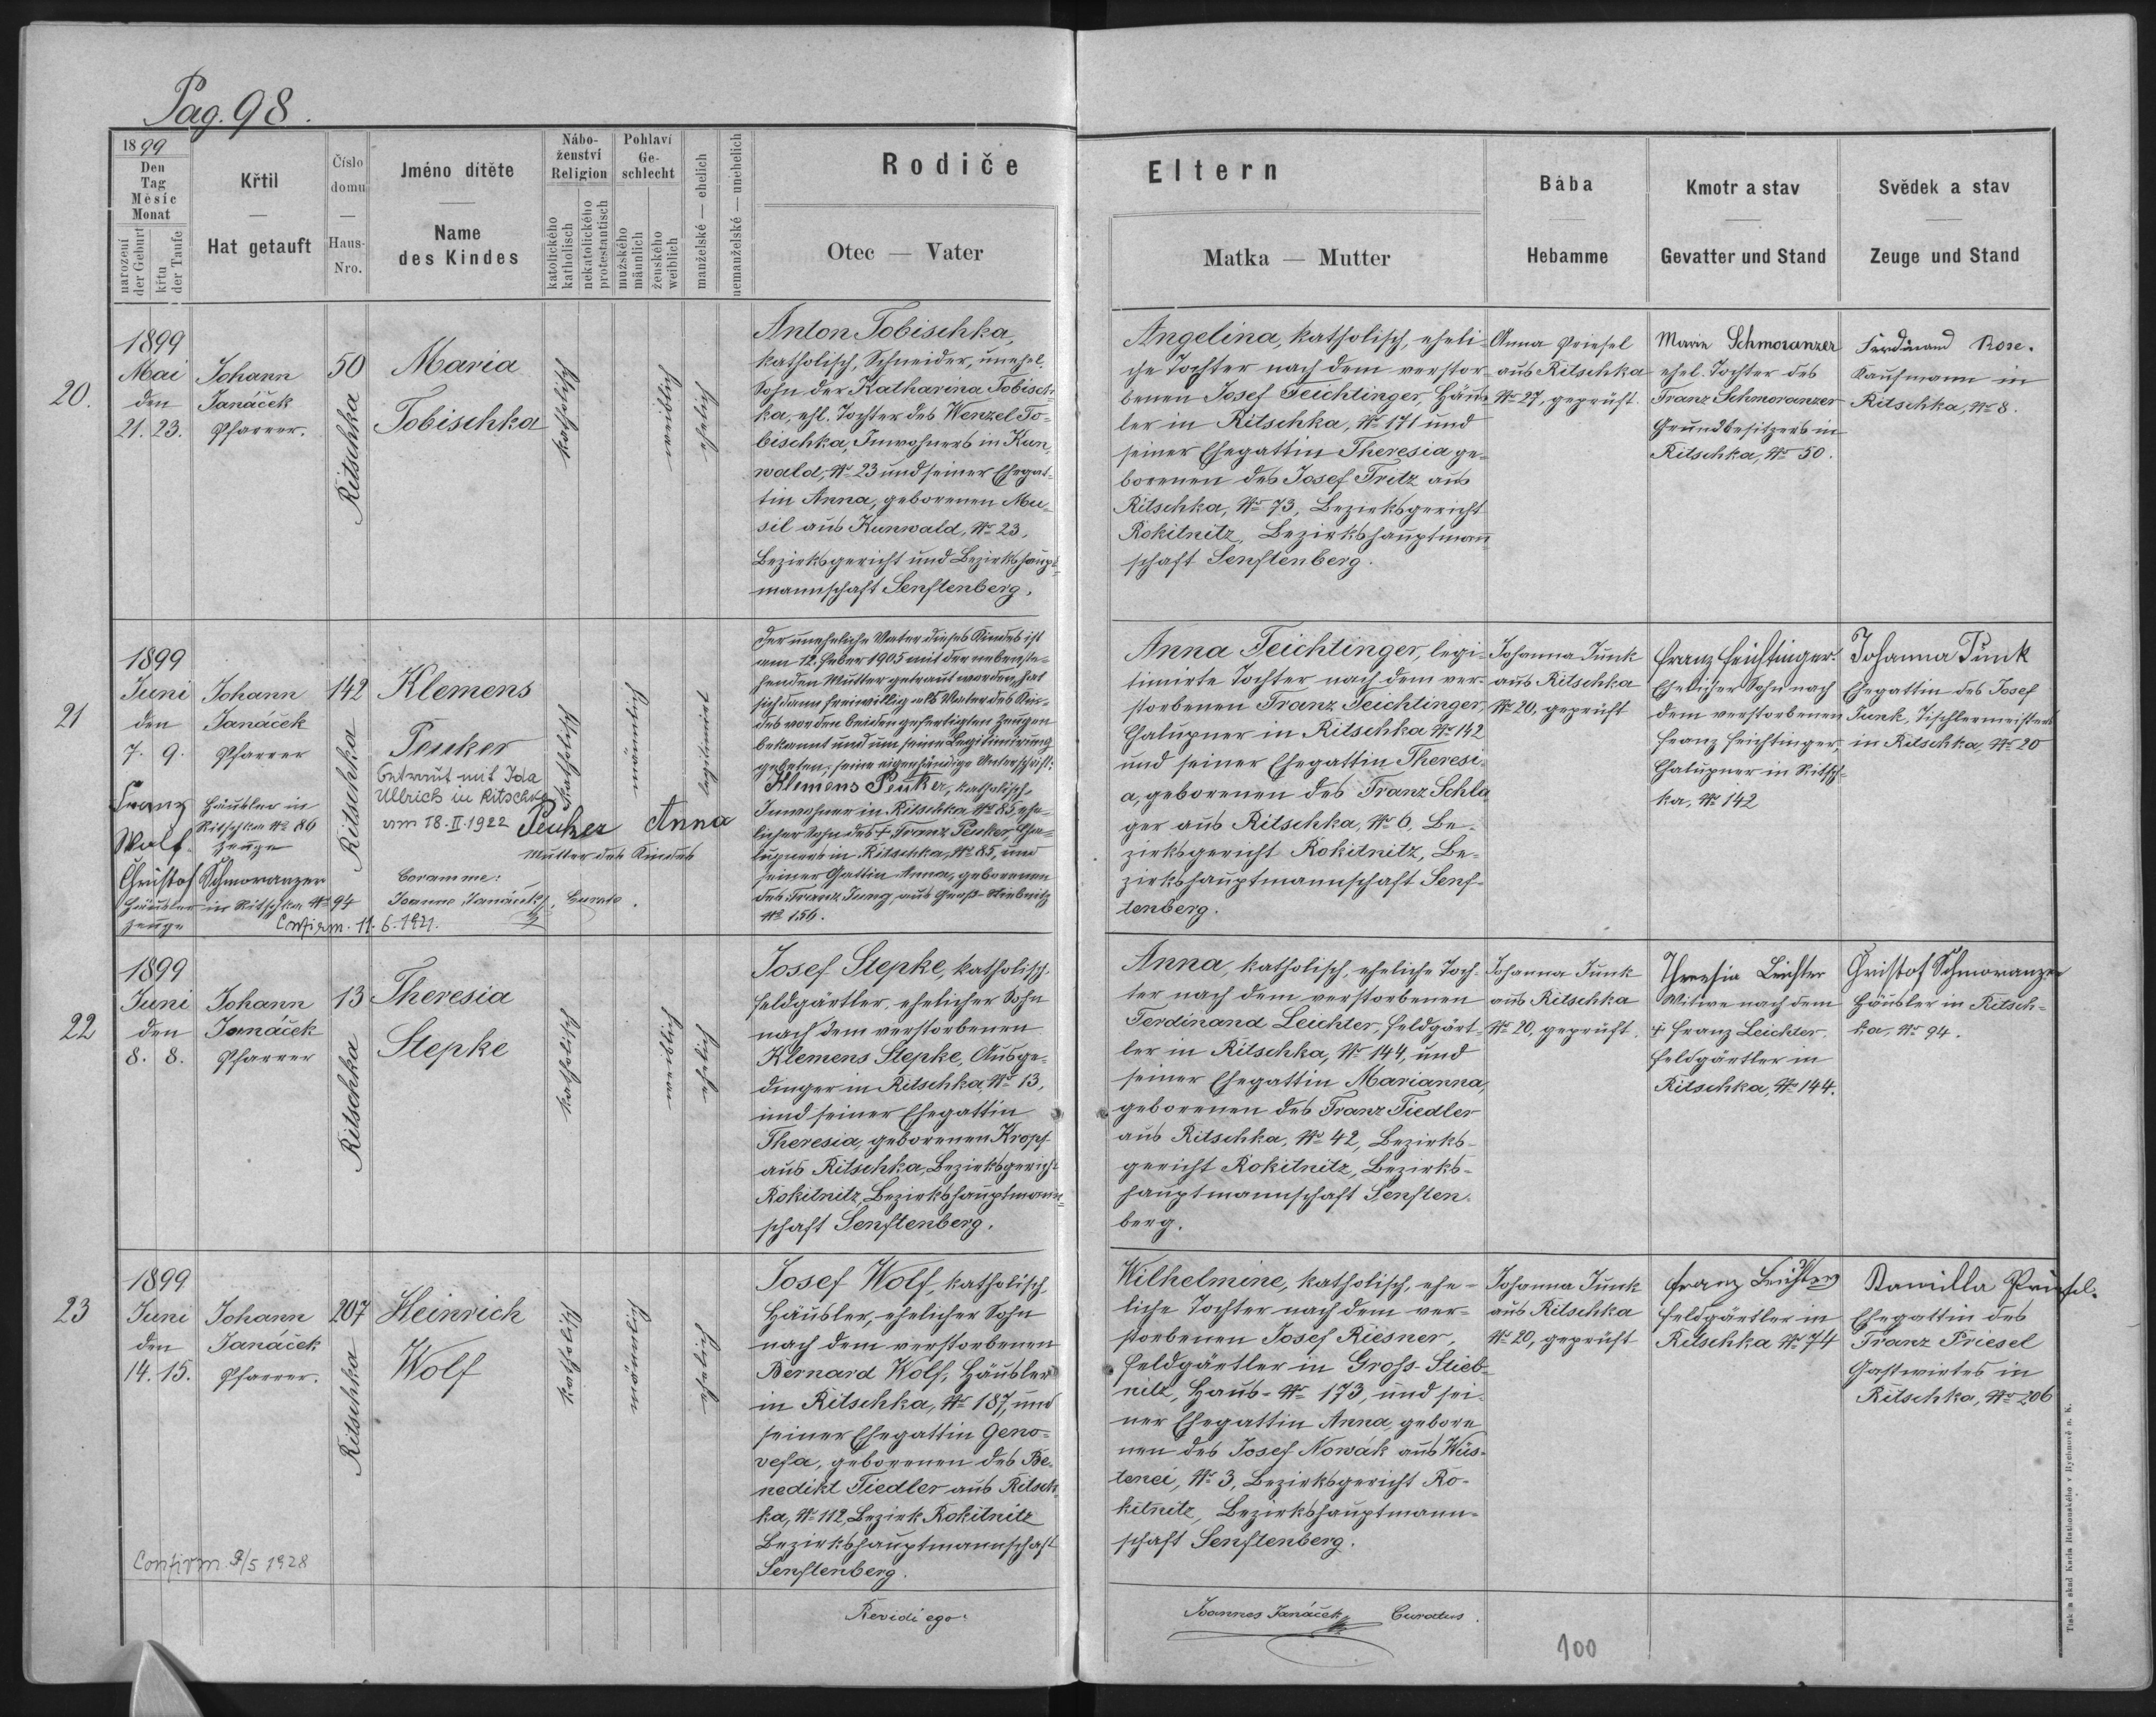 Pag. 98.
1899
Den
Tag
Měsíc
Monat
narození
der Geburt
křtu
der Taufe
Křtil
Hat getauft
Číslo
domu
Haus-
Nro.
Jméno dítěte
Name
des Kindes
Nábo-
ženství
Religion
katolického
katholisch
nekatolického
protestantisch
Pohlaví
Ge-
schlecht
mužského
männlich
ženského
weiblich
manželské — ehelich
nemanželské — unehelich
Rodiče
Otec — Vater
Eltern
Matka — Mutter
Bába
Hebamme
Kmotr a stav
Gevatter und Stand
Svědek a stav
Zeuge und Stand
20.
1899
Mai
den
21. 23.
Johann
Janáček
Pfarrer.
50
Ritschka
Maria
Tobischka
katholisch
weiblich
ehelich
Anton Tobischka,
katholisch, Schneider, unehel.
Sohn der Katharina Tobisch-
ka, ehl. Tochter des Wenzel To-
bischka, Inwohners in Kun-
wald, No 23 und seiner Ehegat-
tin Anna, geborenen Mu-
sil aus Kunwald, No 23,
Bezirksgericht und Bezirkshaupt-
mannschaft Senftenberg.
Angelina, katholisch, eheli-
che Tochter nach dem verstor-
benen Josef Feichtinger, Häus-
ler in Ritschka, No 171 und
seiner Ehegattin Theresia ge-
borenen des Josef Fritz aus
Ritschka, No 73, Bezirksgericht
Rokitnitz, Bezirkshauptmann-
schaft Senftenberg.
Anna Priesel
aus Ritschka
No 27, geprüft.
Marie Schmoranzer
ehel. Tochter des
Franz Schmoranzer
Grundbesitzers in
Ritschka, No 50.
Ferdinand Rose.
Kaufmann in
Ritschka, No 8.
21
1899
Juni
den
7. 9.
Johann
Janáček
Pfarrer
142
Ritschka
Klemens
Peuker
Getraut mit Ida
Ullrich in Ritschka
am 18.II.1922
katholisch
männlich
legitimirt
Der uneheliche Vater dieses Kindes ist
am 12. Feber 1905 mit der nebenste-
henden Mutter getraut worden, hat
sich dann freiwillig als Vater des Kin-
des vor den beiden gefertigten Zeugen
bekannt und um seine Legitimirung
gebeten; seine eigenhändige Unterschrift:
Klemens Peuker, katholisch
Inwohner in Ritschka No 85, ehe-
licher Sohn des † Franz Peuker, Cha-
lupners in Ritschka, No 85, und
seiner Gattin Anna, geborenen
des Franz Jung, aus Groß-Stiebnitz
No 156.
Franz
Wolf.
Häusler in
Ritschka No 86
Zeuge
Peuker Anna
Mutter des Kindes
Christof Schmoranzer
Häusler in Ritschka No 94
Zeuge
Coram me:
Joanne Janáček, Curato.
Confirm. 11. 6. 1921.
Anna Feichtinger, legi-
timirte Tochter nach dem ver-
storbenen Franz Feichtinger,
Chalupner in Ritschka No 142
und seiner Ehegattin Theresi-
a, geborenen des Franz Schla-
ger aus Ritschka, No 6, Be-
zirksgericht Rokitnitz, Be-
zirkshauptmannschaft Senf-
tenberg.
Johanna Junk
aus Ritschka
No 20, geprüft
Franz Feichtinger
Ehelicher Sohn nach
dem verstorbenen
Franz Feichtinger,
Chalupner in Ritsch-
ka, No 142
Johanna Junk
Ehegattin des Josef
Junk, Tischlermeisters
in Ritschka, No 20
22
1899
Juni
den
8. 8.
Johann
Janáček
Pfarrer
13
Ritschka
Theresia
Stepke
katholisch
weiblich
ehelich
Josef Stepke, katholisch,
Feldgärtler, ehelicher Sohn
nach dem verstorbenen
Klemens Stepke, Ausge-
dinger in Ritschka, No 13,
und seiner Ehegattin
Theresia, geborenen Kropf
aus Ritschka, Bezirksgericht
Rokitnitz, Bezirkshauptmann-
schaft Senftenberg.
Anna, katholisch, eheliche Toch-
ter nach dem verstorbenen
Ferdinand Leichter, Feldgärt-
ler in Ritschka, No 144, und
seiner Ehegattin Marianna,
geborenen des Franz Fiedler
aus Ritschka, No 42, Bezirks-
gericht Rokitnitz, Bezirks-
hauptmannschaft Senften-
berg.
Johanna Junk
aus Ritschka
No 20, geprüft.
Theresia Leichter
Witwe nach dem
† Franz Leichter,
Feldgärtler in
Ritschka, No 144.
Christof Schmoranzer
Häusler in Ritsch-
ka, No 94.
23
1899
Juni
den
14. 15.
Johann
Janáček
Pfarrer.
207
Ritschka
Heinrich
Wolf
katholisch
männlich
ehelich
Josef Wolf, katholisch,
Häusler, ehelicher Sohn
nach dem verstorbenen
Bernard Wolf, Häusler
in Ritschka, No 187, und
seiner Ehegattin Geno-
vefa, geborenen des Be-
nedikt Fiedler aus Ritsch-
ka, No 112, Bezirk Rokitnitz
Bezirkshauptmannschaft
Senftenberg.
Wilhelmine, katholisch, ehe-
liche Tochter nach dem ver-
storbenen Josef Riesner,
Feldgärtler in Gross-Stieb-
nitz, Haus-No 173, und sei-
ner Ehegattin Anna, gebore
nen des Josef Nowák aus Wüs-
tenei, No 3, Bezirksgericht Ro-
kitnitz, Bezirkshauptmann-
schaft Senftenberg.
Johanna Junk
aus Ritschka
No 20, geprüft
Franz Leichter
Feldgärtler in
Ritschka No 74
Kamilla Priesel.
Ehegattin des
Franz Priesel
Gastwirtes in
Ritschka, No 206
Confirm. 9/5 1928
Revidi ego:
Joannes Janáček, Curatus.
100
Tisk a sklad Karla Rathouského v Rychnově n. K.